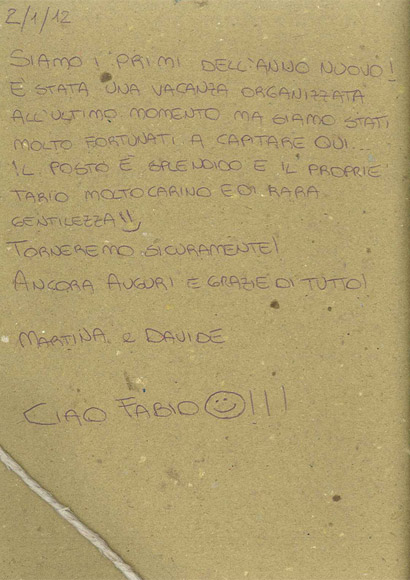 2/1/12
SIAMO I PRIMI DELL'ANNO NUOVO!
È STATA UNA VACANZA ORGANIZZATA
ALL'ULTIMO MOMENTO MA SIAMO STATI
MOLTO FORTUNATI A CAPITARE QUI...
IL POSTO È SPLENDIDO E IL PROPRIE
TARIO MOLTO CARINO E DI RARA
GENTILEZZA!!
TORNEREMO SICURAMENTE!
ANCORA AUGURI E GRAZIE DI TUTTO!
MARTINA e DAVIDE
CIAO FABIO ☺!!!